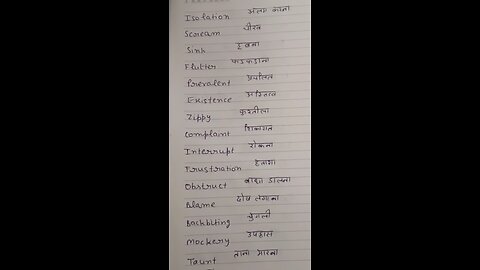 Isolation अलग करना
Scream चीख
Sink डूबना
Flutter फडफडाना
Prevalent प्रचलित
Existence अस्तित्व
Zippy फुरतीला
Complaint शिकायत
Interrupt रोकना
Frustration हताशा
Obstruct बाधा डालना
Blame दोष लगाना
Backbiting चुगली
Mockery उपहास
Taunt ताना मारना